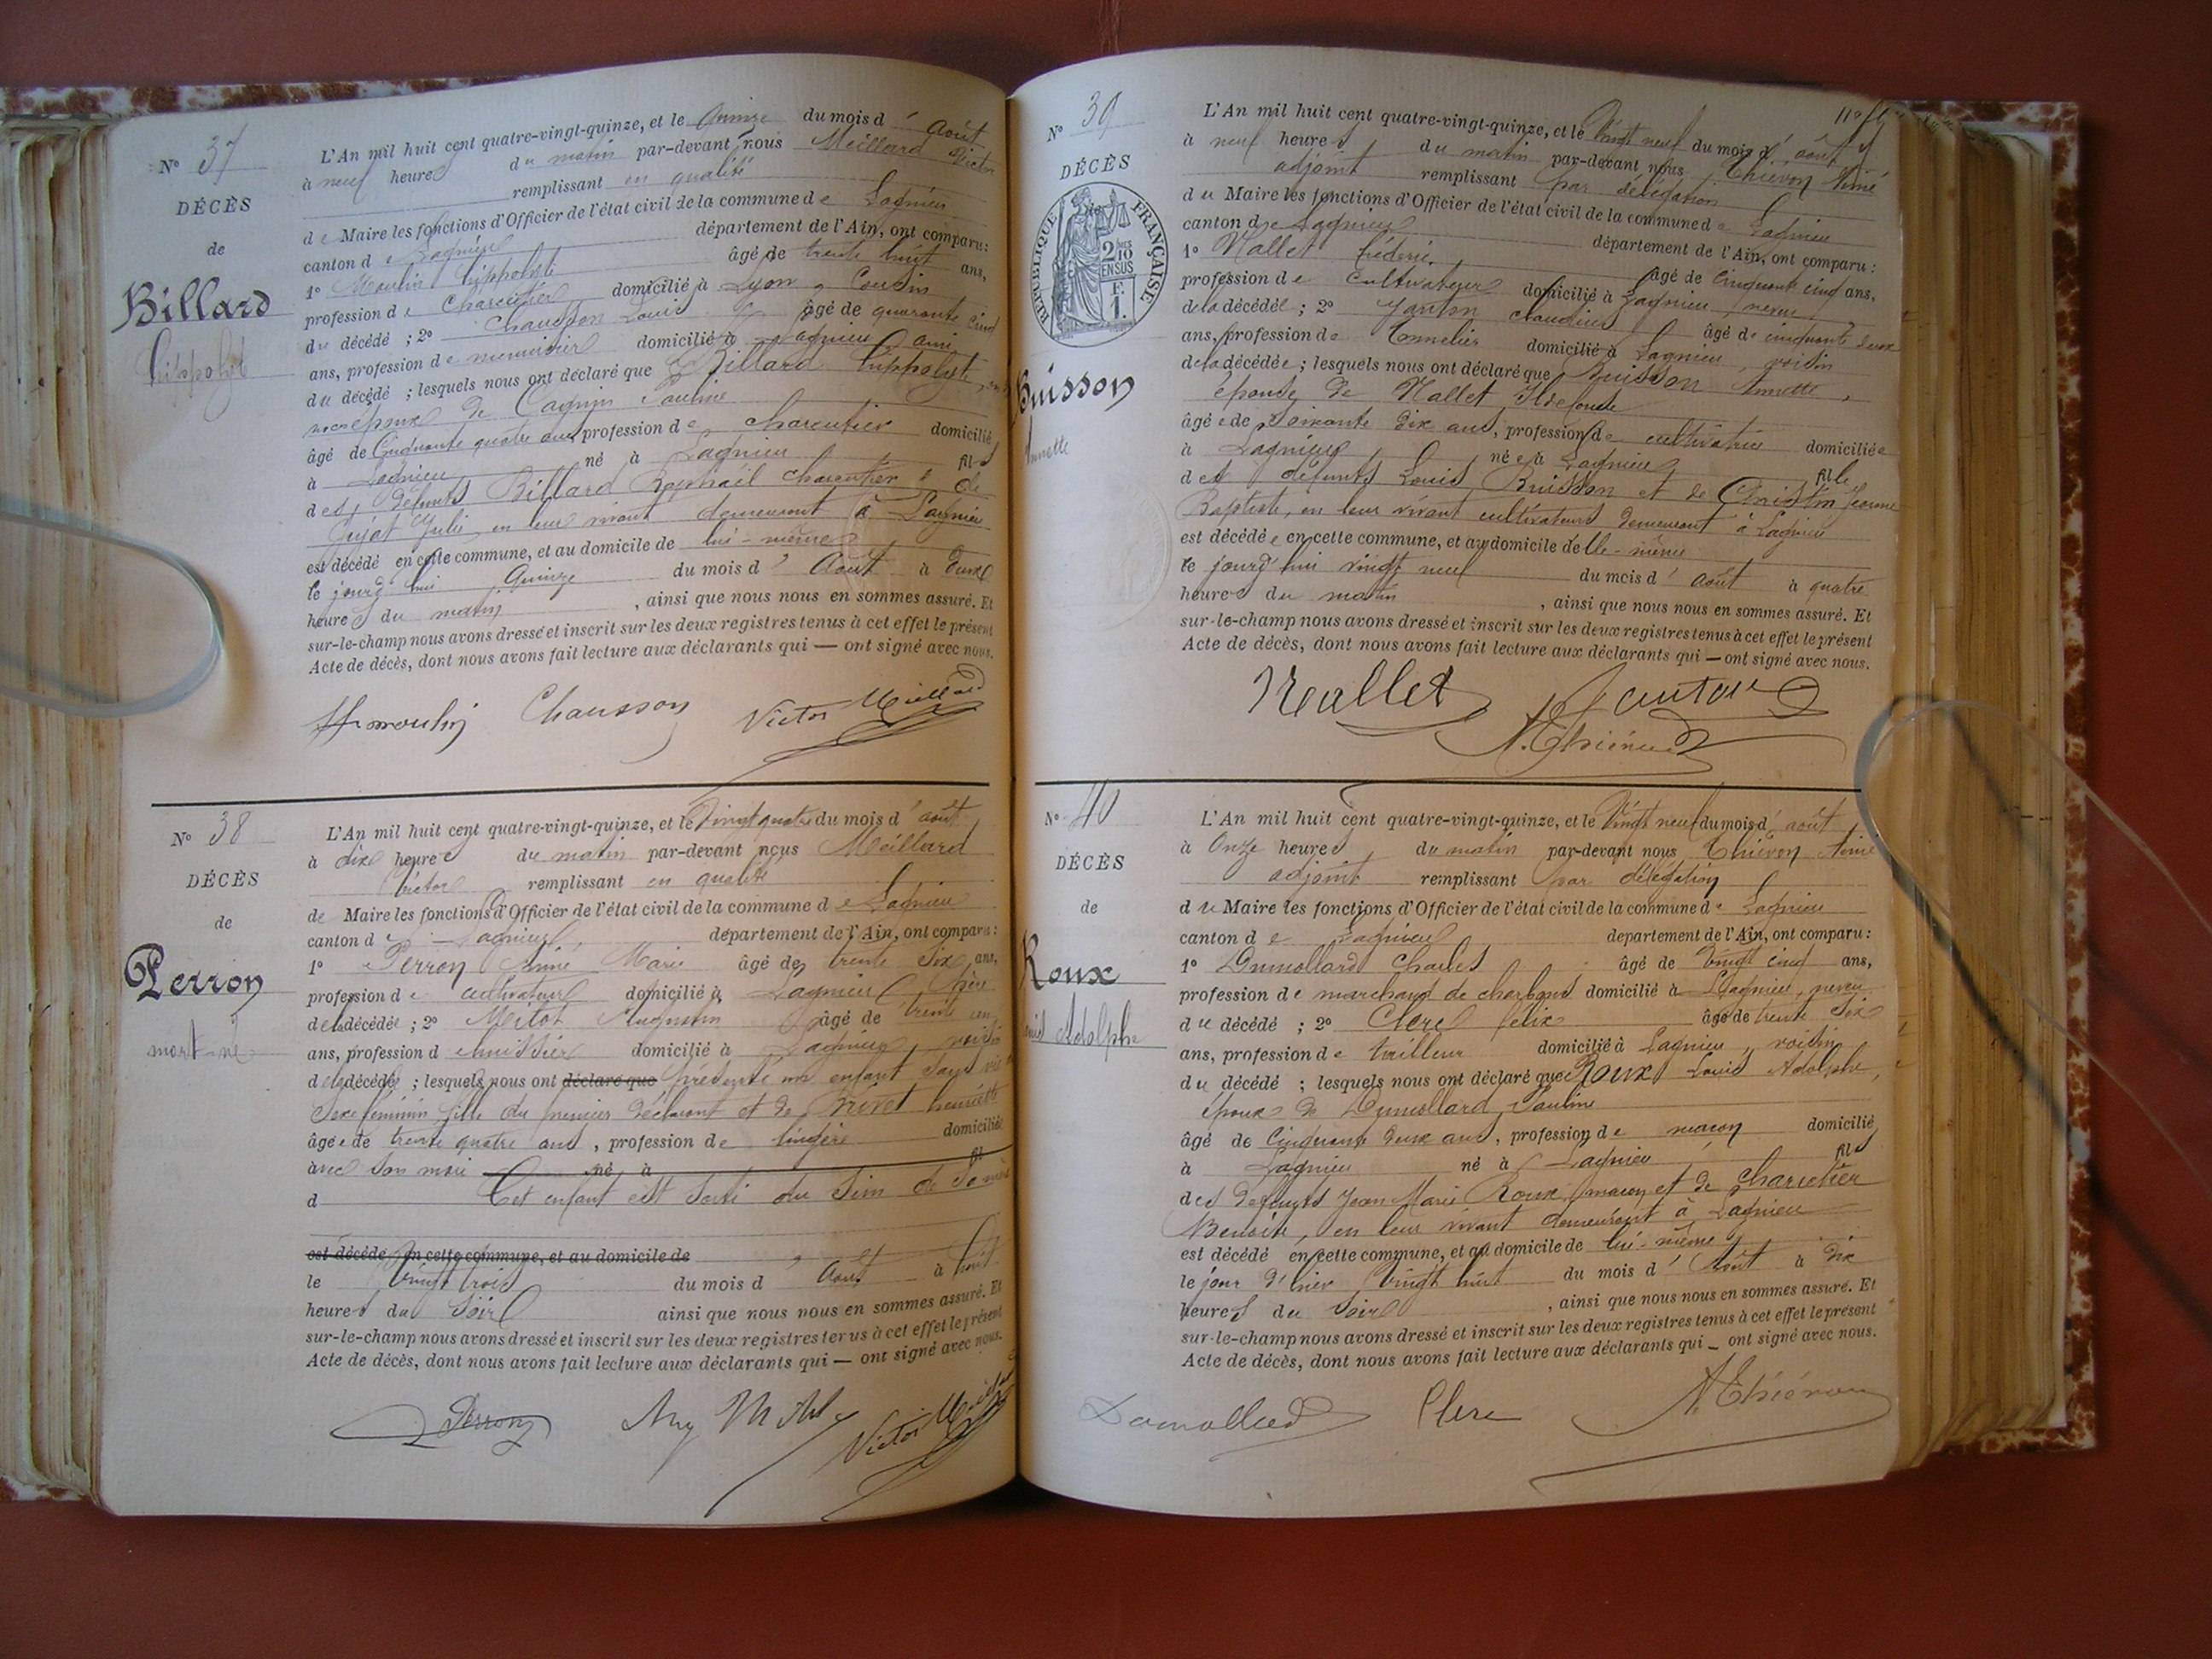 N° 37
DÉCÈS
de
Billard
hippolyte
L'An mil huit cent quatre-vingt-quinze, et le Quinze du mois d' Août
à neuf heures du matin par-devant nous Meillard Victor
remplissant en qualité
de Maire les fonctions d'Officier de l'état civil de la commune de Lagnieu
canton de Lagnieu département de l'Ain, ont comparu:
1° Moulin hippolyte âgé de trente huit ans,
profession de Charcutier domicilié à Lyon, Cousin
du décédé; 2° Chausson Louis âgé de quarante cinq
ans, profession de menuisier domicilié à Lagnieu ami
du décédé; lesquels nous ont déclaré que Billard hippolyte
époux de Pauline
âgé de Cinquante quatre ans profession de charcutier domicilié
à Lagnieu né à Lagnieu fils
des défunts Billard Raphaël charcutier & de
Gujat Julie en leur vivant demeurant à Lagnieu
est décédé en cette commune, et au domicile de lui-même
le jourd'hui Quinze du mois d' Août à deux
heures du matin, ainsi que nous nous en sommes assuré. Et
sur-le-champ nous avons dressé et inscrit sur les deux registres tenus à cet effet le présent
Acte de décès, dont nous avons fait lecture aux déclarants qui — ont signé avec nous.
H moulin Chausson Victor Meillard
N° 38
DÉCÈS
de
Perron
mort-né
L'An mil huit cent quatre-vingt-quinze, et le Vingt quatre du mois d' août
à dix heures du matin par-devant nous Meillard
Victor remplissant en qualité
de Maire les fonctions d'Officier de l'état civil de la commune de Lagnieu
canton de Lagnieu département de l'Ain, ont comparu:
1° Perron Aimé Marie âgé de trente six ans,
profession de cultivateur domicilié à Lagnieu Père
de la décédée; 2° Mitot âgé de trente un
ans, profession d'huissier domicilié à Lagnieu, voisin
de la décédée; lesquels nous ont déclaré que présenté un enfant sans vie
Sexe féminin fille du premier déclarant et de Brivet henriette
âgée de trente quatre ans, profession de lingère domiciliée
avec son mari né à fil
d Cet enfant est sorti du sein de sa mère
est décédé en cette commune, et au domicile de
le Vingt trois du mois d' Août à huit
heures du soir ainsi que nous nous en sommes assuré. Et
sur-le-champ nous avons dressé et inscrit sur les deux registres tenus à cet effet le présent
Acte de décès, dont nous avons fait lecture aux déclarants qui — ont signé avec nous.
Perron Victor Meillard
N° 39
DÉCÈS
de
RÉPUBLIQUE FRANÇAISE
2/10 EN SUS
F. 1.
Buisson
Annette
L'An mil huit cent quatre-vingt-quinze, et le Vingt neuf du mois d' août
à neuf heures du matin par-devant nous Thiévon Aimé
adjoint remplissant par délégation
du Maire les fonctions d'Officier de l'état civil de la commune de Lagnieu
canton de Lagnieu département de l'Ain, ont comparu:
1° Nallet frédéric âgé de Cinquante cinq ans,
profession de Cultivateur domicilié à Lagnieu, neveu
de la décédée; 2° Janton claudius âgé de cinquante deux
ans, profession de Tonnelier domicilié à Lagnieu, voisin
de la décédée; lesquels nous ont déclaré que Buisson Annette,
épouse de Nallet Ildefonse
âgée de Soixante dix ans, profession de cultivatrice domiciliée
à Lagnieu née à Lagnieu fille
des défunts Louis Buisson et de Christin Jeanne
Baptiste, en leur vivant cultivateurs demeurant à Lagnieu
est décédée en cette commune, et au domicile de Elle-même
le jourd'hui vingt neuf du mois d' août à quatre
heures du matin, ainsi que nous nous en sommes assuré. Et
sur-le-champ nous avons dressé et inscrit sur les deux registres tenus à cet effet le présent
Acte de décès, dont nous avons fait lecture aux déclarants qui — ont signé avec nous.
Nallet Janton
A. Thiévon
N° 40
DÉCÈS
de
Roux
Louis Adolphe
L'An mil huit cent quatre-vingt-quinze, et le Vingt neuf du mois d' août
à Onze heures du matin par-devant nous Thiévon Aimé
adjoint remplissant par délégation
du Maire les fonctions d'Officier de l'état civil de la commune de Lagnieu
canton de Lagnieu département de l'Ain, ont comparu:
1° Dumollard Charles âgé de Vingt cinq ans,
profession de marchand de charbons domicilié à Lagnieu, neveu
du décédé; 2° Clerc félix âgé de trente six
ans, profession de tailleur domicilié à Lagnieu, voisin
du décédé; lesquels nous ont déclaré que Roux Louis Adolphe,
époux de Dumollard Pauline
âgé de Cinquante deux ans, profession de maçon domicilié
à Lagnieu né à Lagnieu fils
des défunts Jean Marie Roux maçon et de Charvetier
Benoite, en leur vivant demeurant à Lagnieu
est décédé en cette commune, et au domicile de lui-même
le jour d'hier Vingt huit du mois d' Août à dix
heures du soir, ainsi que nous nous en sommes assuré. Et
sur-le-champ nous avons dressé et inscrit sur les deux registres tenus à cet effet le présent
Acte de décès, dont nous avons fait lecture aux déclarants qui — ont signé avec nous.
Dumollard Clerc A. Thiévon